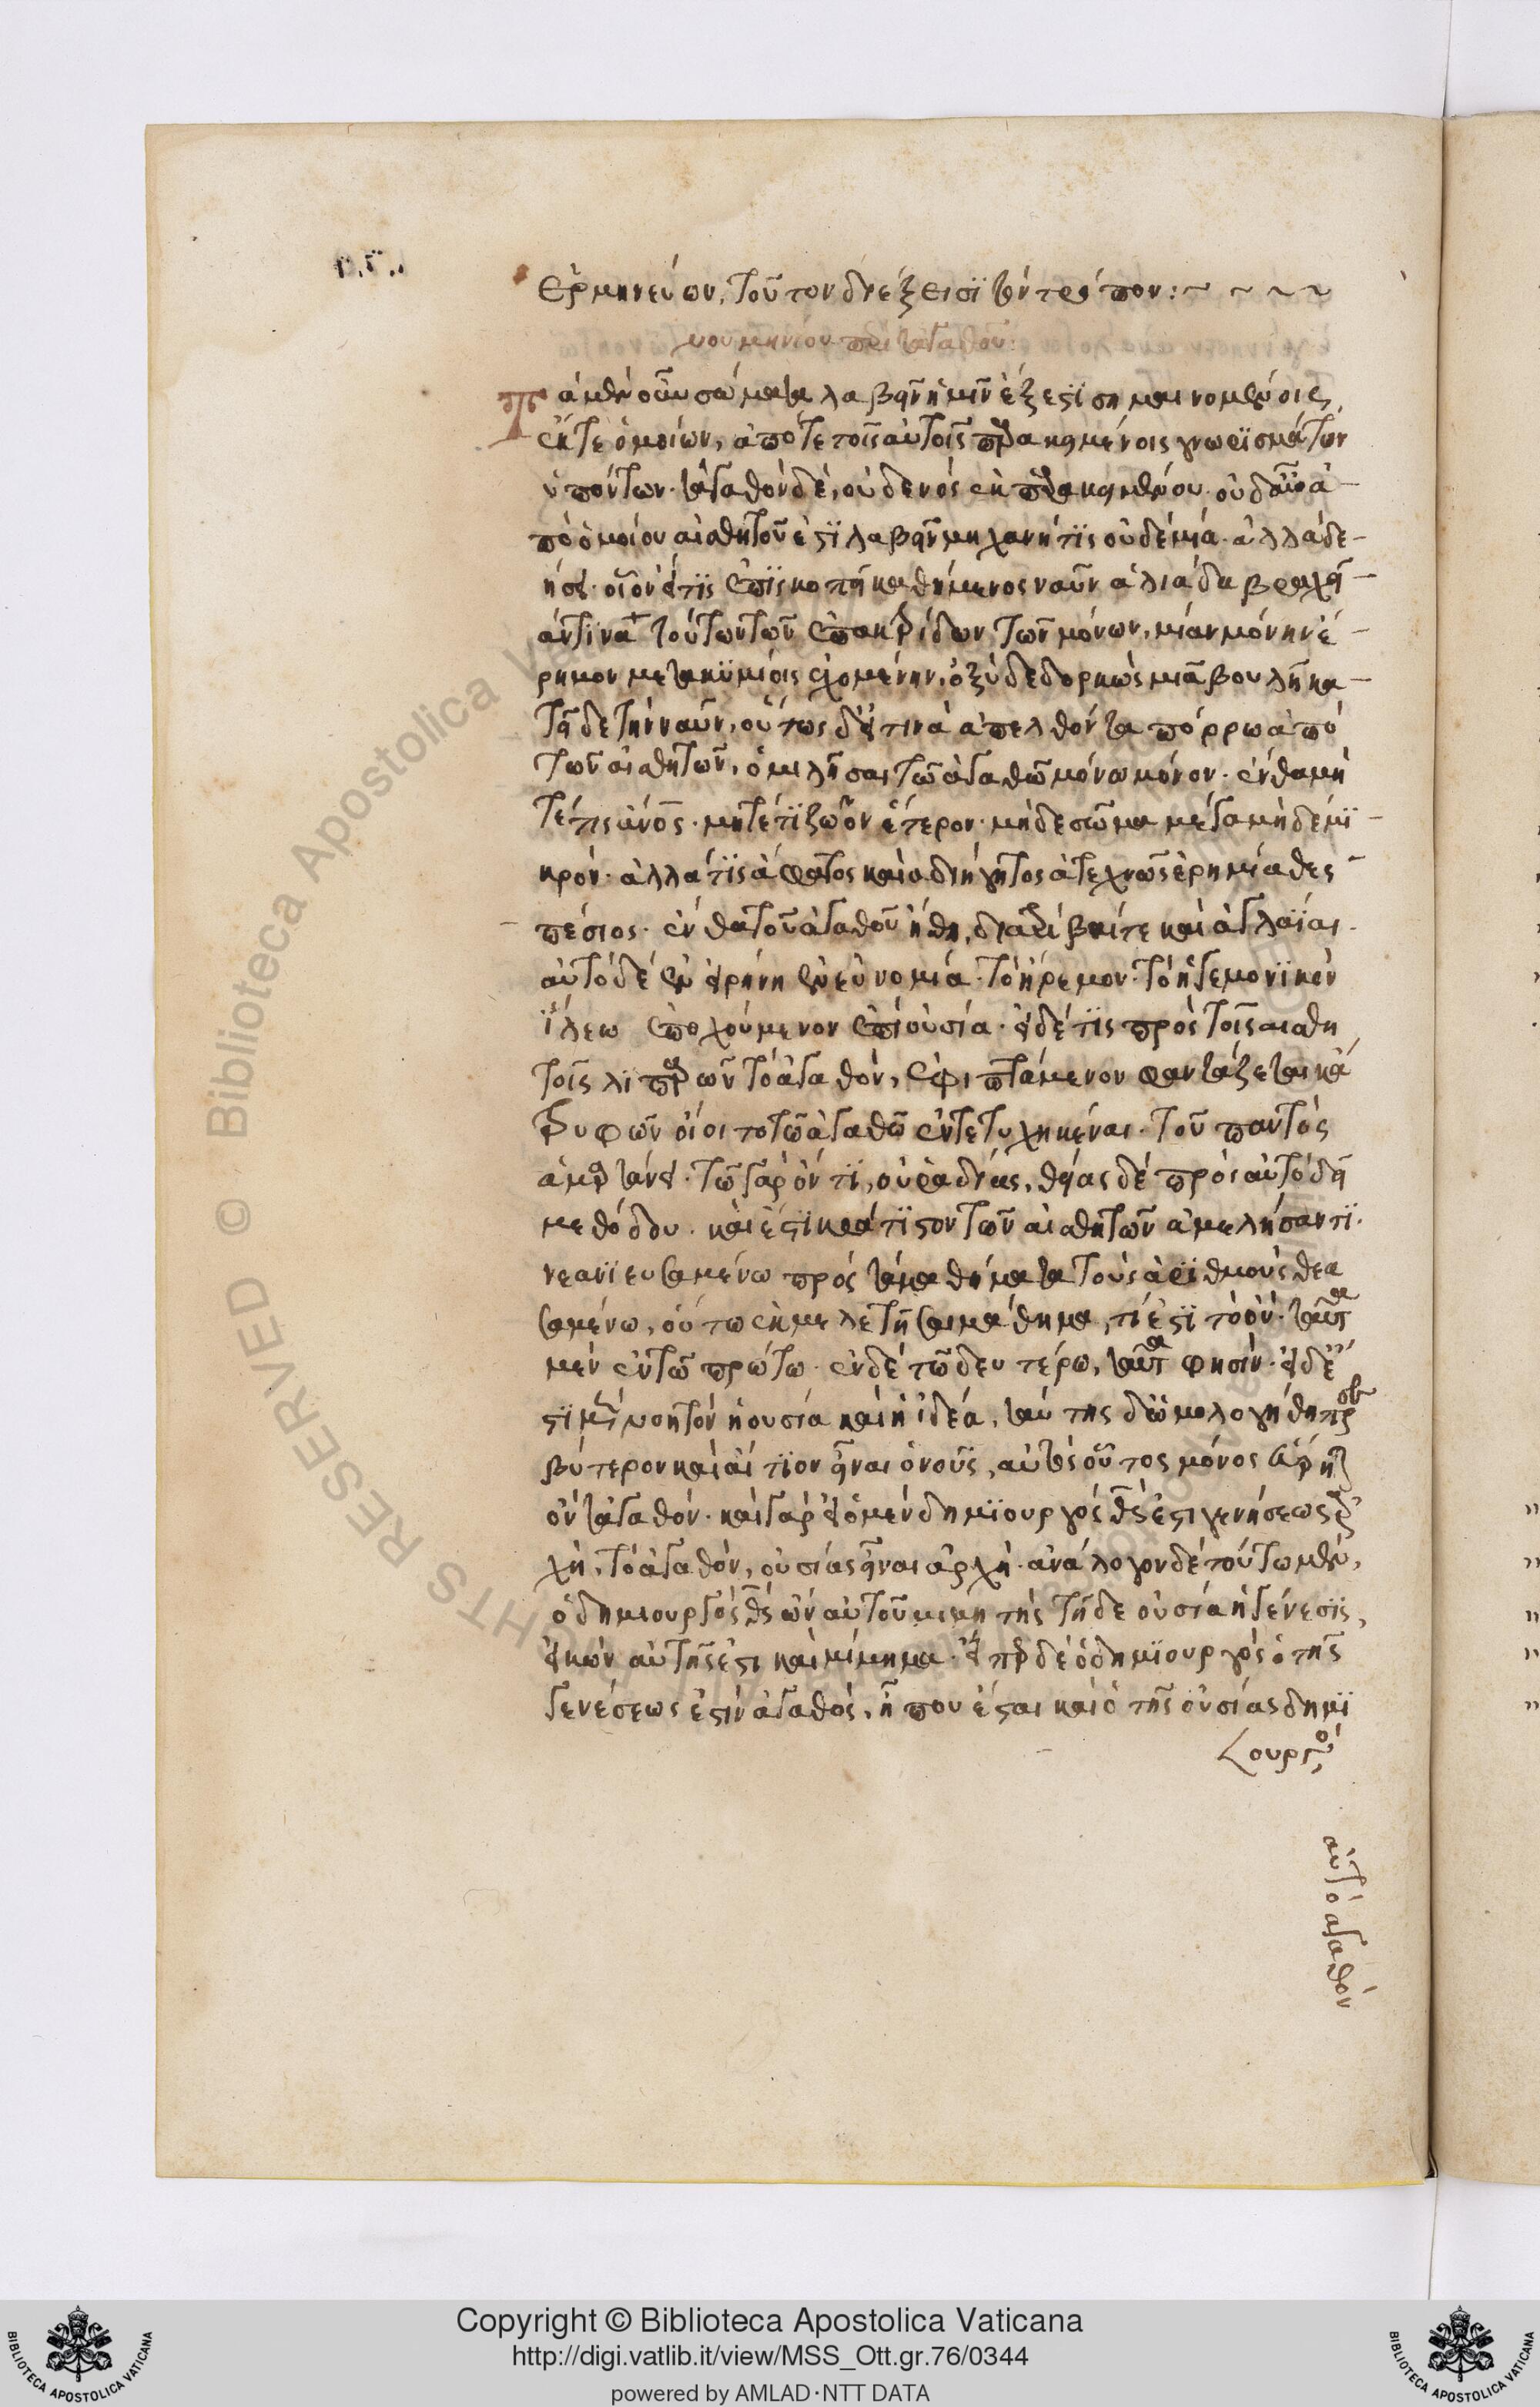 ἑρμηνεύων, τοῦτον διέξεισϊ τὸν τρόπον:~ ~ ~ ~
νουμηνίου περὶ τἀγαθοῦ:
Τὰ μὲν οὖν σώματα λαβεῖν ἡμῖν ἔξεστϊ σημαινομένοις
ἔκ τε ὁμοίων, ἀπό τε τοῖς αὐτοῖς παρακειμένοις γνωρϊσμάτων
ὑπόντων. τἀγαθὸν δὲ, οὐδενὸς ἐκ παρακειμένου. οὐδ' αὖ ἀ-
πὸ ὁμοίου αἰσθητοῦ ἐστϊ λαβεῖν μηχανή τϊς οὐδεμία. ἀλλὰ δε-
ήσει. οἷον εἴ τϊς ἐπϊσκοπῇ καθήμενος ναῦν ἁλιάδα βραχεῖ-
άν τϊνα τούτων τῶν ἐπακτρίδων τῶν μόνων, μίαν μόνην ἔ-
ρημον μετακϋμίοις ἐχομένην, ὀξὺ δεδορκὼς μιᾷ βουλῇ κα-
τεῖδε τὴν ναῦν, οὕτως δεῖ τινὰ ἀπελθόντα πόρρω ἀπὸ
τῶν αἰσθητῶν, ὁμιλῆσαι τῷ ἀγαθῷ μόνῳ μόνον. ἔνθα μή
τέ τις ἄνος. μήτέ τϊ ζῶον ἕτερον. μὴδε σῶμα μέγα μὴδέ μϊ-
κρόν. ἀλλά τϊς ἄφατος καὶ ἀδιήγητος ἀτεχνῶς ἐρημία θεσ-
πέσιος. ἔνθα τοῦ ἀγαθοῦ ἤθη, διατριβαί τε καὶ ἀγλαΐαι.
αὐτὸ δὲ ἐν εἰρήνῃ ἐν εὐνομίᾳ. τὸ ἤρεμον. τὸ ἡγεμονϊκὸν
ἵλεω ἐποχούμενον ἐπὶ οὐσίᾳ. εἰ δέ τϊς πρὸς τοῖς αἰσθη
τοῖς λιπαρῶν τὸ ἀγαθὸν, ἐφιπτάμενον φαντάζεται κἂ
τρυφῶν οἴοιτο τῷ ἀγαθῷ ἐντετυχηκέναι. τοῦ παντὸς
ἁμαρτάνει. τῷ γὰρ ὄντϊ, οὐ ῥαδίας, θείας δὲ πρὸς αὐτὸ δεῖ
μεθόδου. καὶ ἔστϊ κράτϊστον τῶν αἰσθητῶν ἀμελήσαντϊ.
νεανϊευσαμένῳ πρὸς τὰ μαθήματα τοὺς ἀρϊθμοὺς θεα
σαμένῳ, οὕτω ἐκμελετῆσαι μάθημα, τί ἐστϊ τὸ ὄν. ταῦτα
μὲν ἐν τῷ πρώτῳ. ἐν δὲ τῷ δευτέρῳ, ταῦτα φησίν. εἰ δ' ἔ
στϊ μὲν νοητὸν ἡ οὐσία καὶ ἡ ἰδέα, ταύτης δ' ὡμολογήθη πρεσ
βύτερον καὶ αἴτϊον εἶναι ὁ νοῦς, αὐτὸς οὗτος μόνος εὕρηται
ὂν τἀγαθόν. καὶ γὰρ εἰ ὁ μὲν δημϊουργὸς θς ἐστι γενήσεως ἀρ
χὴ, τὸ ἀγαθὸν, οὐσίας εἶναι ἀρχή. ἀνάλογον δὲ τούτῳ μὲν,
ὁ δημιουργὸς θς ὢν αὐτοῦ μιμητὴς τῇ δὲ οὐσίᾳ ἡ γένεσϊς,
εἰκὼν αὐτῆς ἐστι καὶ μίμημα. εἴπερ δὲ ὁ δημϊουργὸς ὁ τῆς
γενέσεως ἐστὶν ἀγαθὸς, ἦ που ἔσται καὶ ὁ τῆς οὐσίας δημϊ
ουργὸς
αὐτὸ ἀγαθόν
Copyright © Biblioteca Apostolica Vaticana
http://digi.vatlib.it/view/MSS_Ott.gr.76/0344
powered by AMLAD·NTT DATA